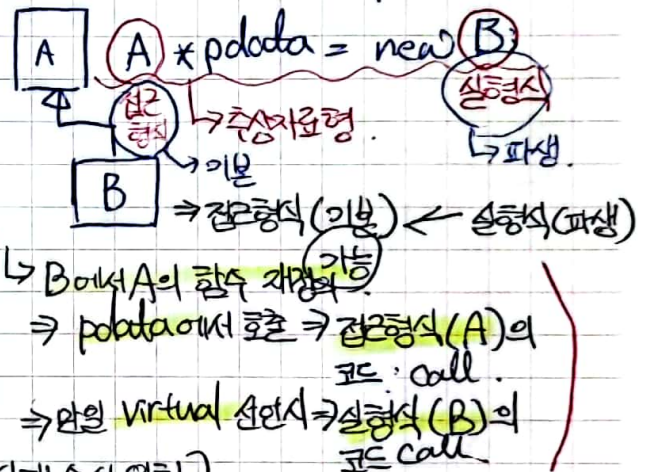 A A *pdata = new B;
접근
형식
실형식
↳ 추상자료형.
↳ 파생.
→ 기본
B
⇒ 접근형식(기본) ← 실형식(파생)
가능
↳ B에서 A의 함수 재정의.
⇒ pdata에서 호출 ⇒ 접근형식(A)의
코드 call.
⇒ 만일 virtual 선언시 ⇒ 실형식(B)의
코드 call.